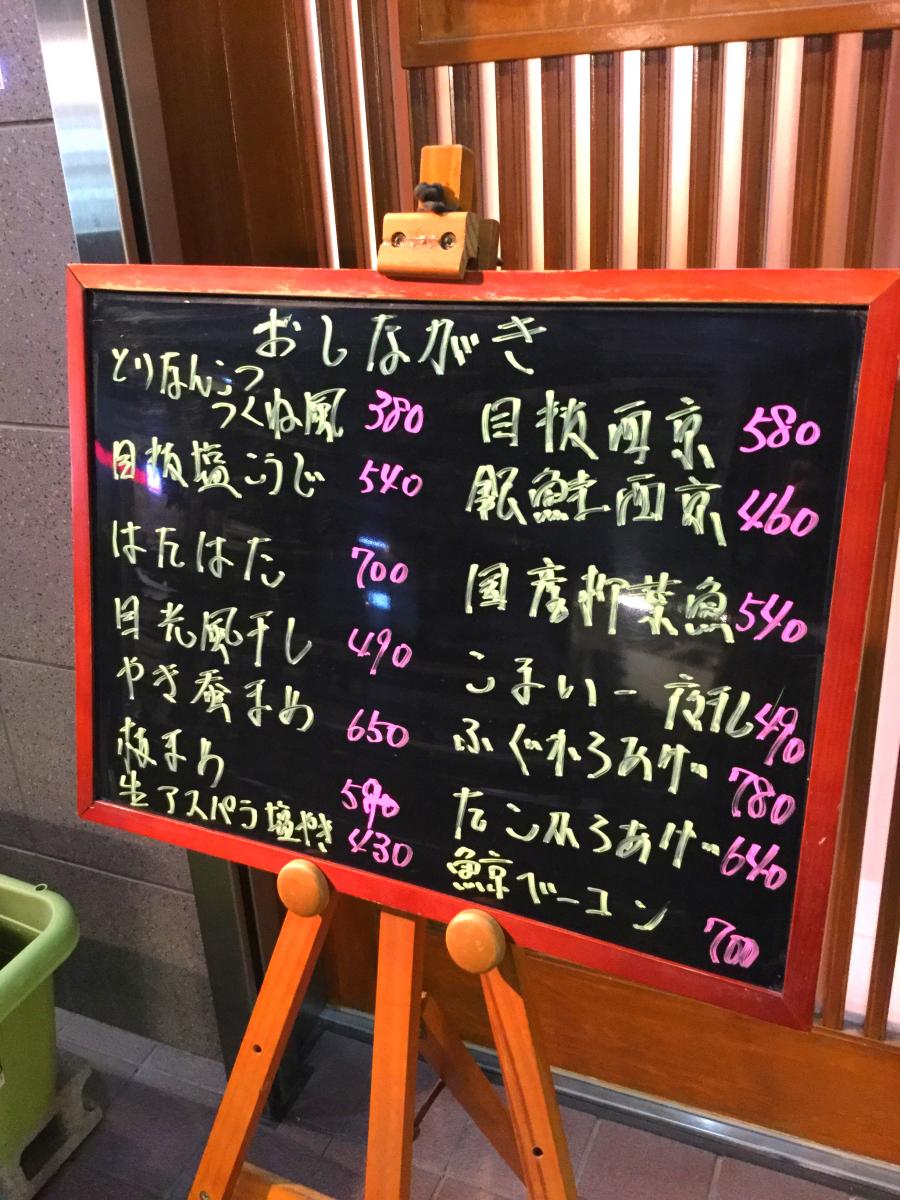 おしながき
とりなんこつ
つくね風 380
目抜塩こうじ 540
はたはた 700
目光風干し 490
やき蚕まめ 650
枝まめ 590
生アスパラ塩やき 430
目抜西京 580
銀鮭西京 460
国産柳葉魚 540
こまい一夜干し 490
ふぐから揚げ 780
たこから揚げ 640
鯨ベーコン 700